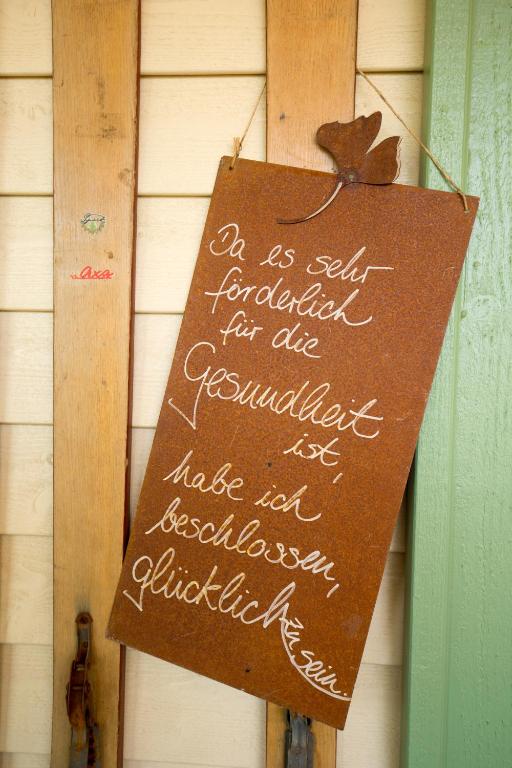 Da es sehr
förderlich
für die
Gesundheit
ist,
habe ich
beschlossen,
glücklich
zu sein.